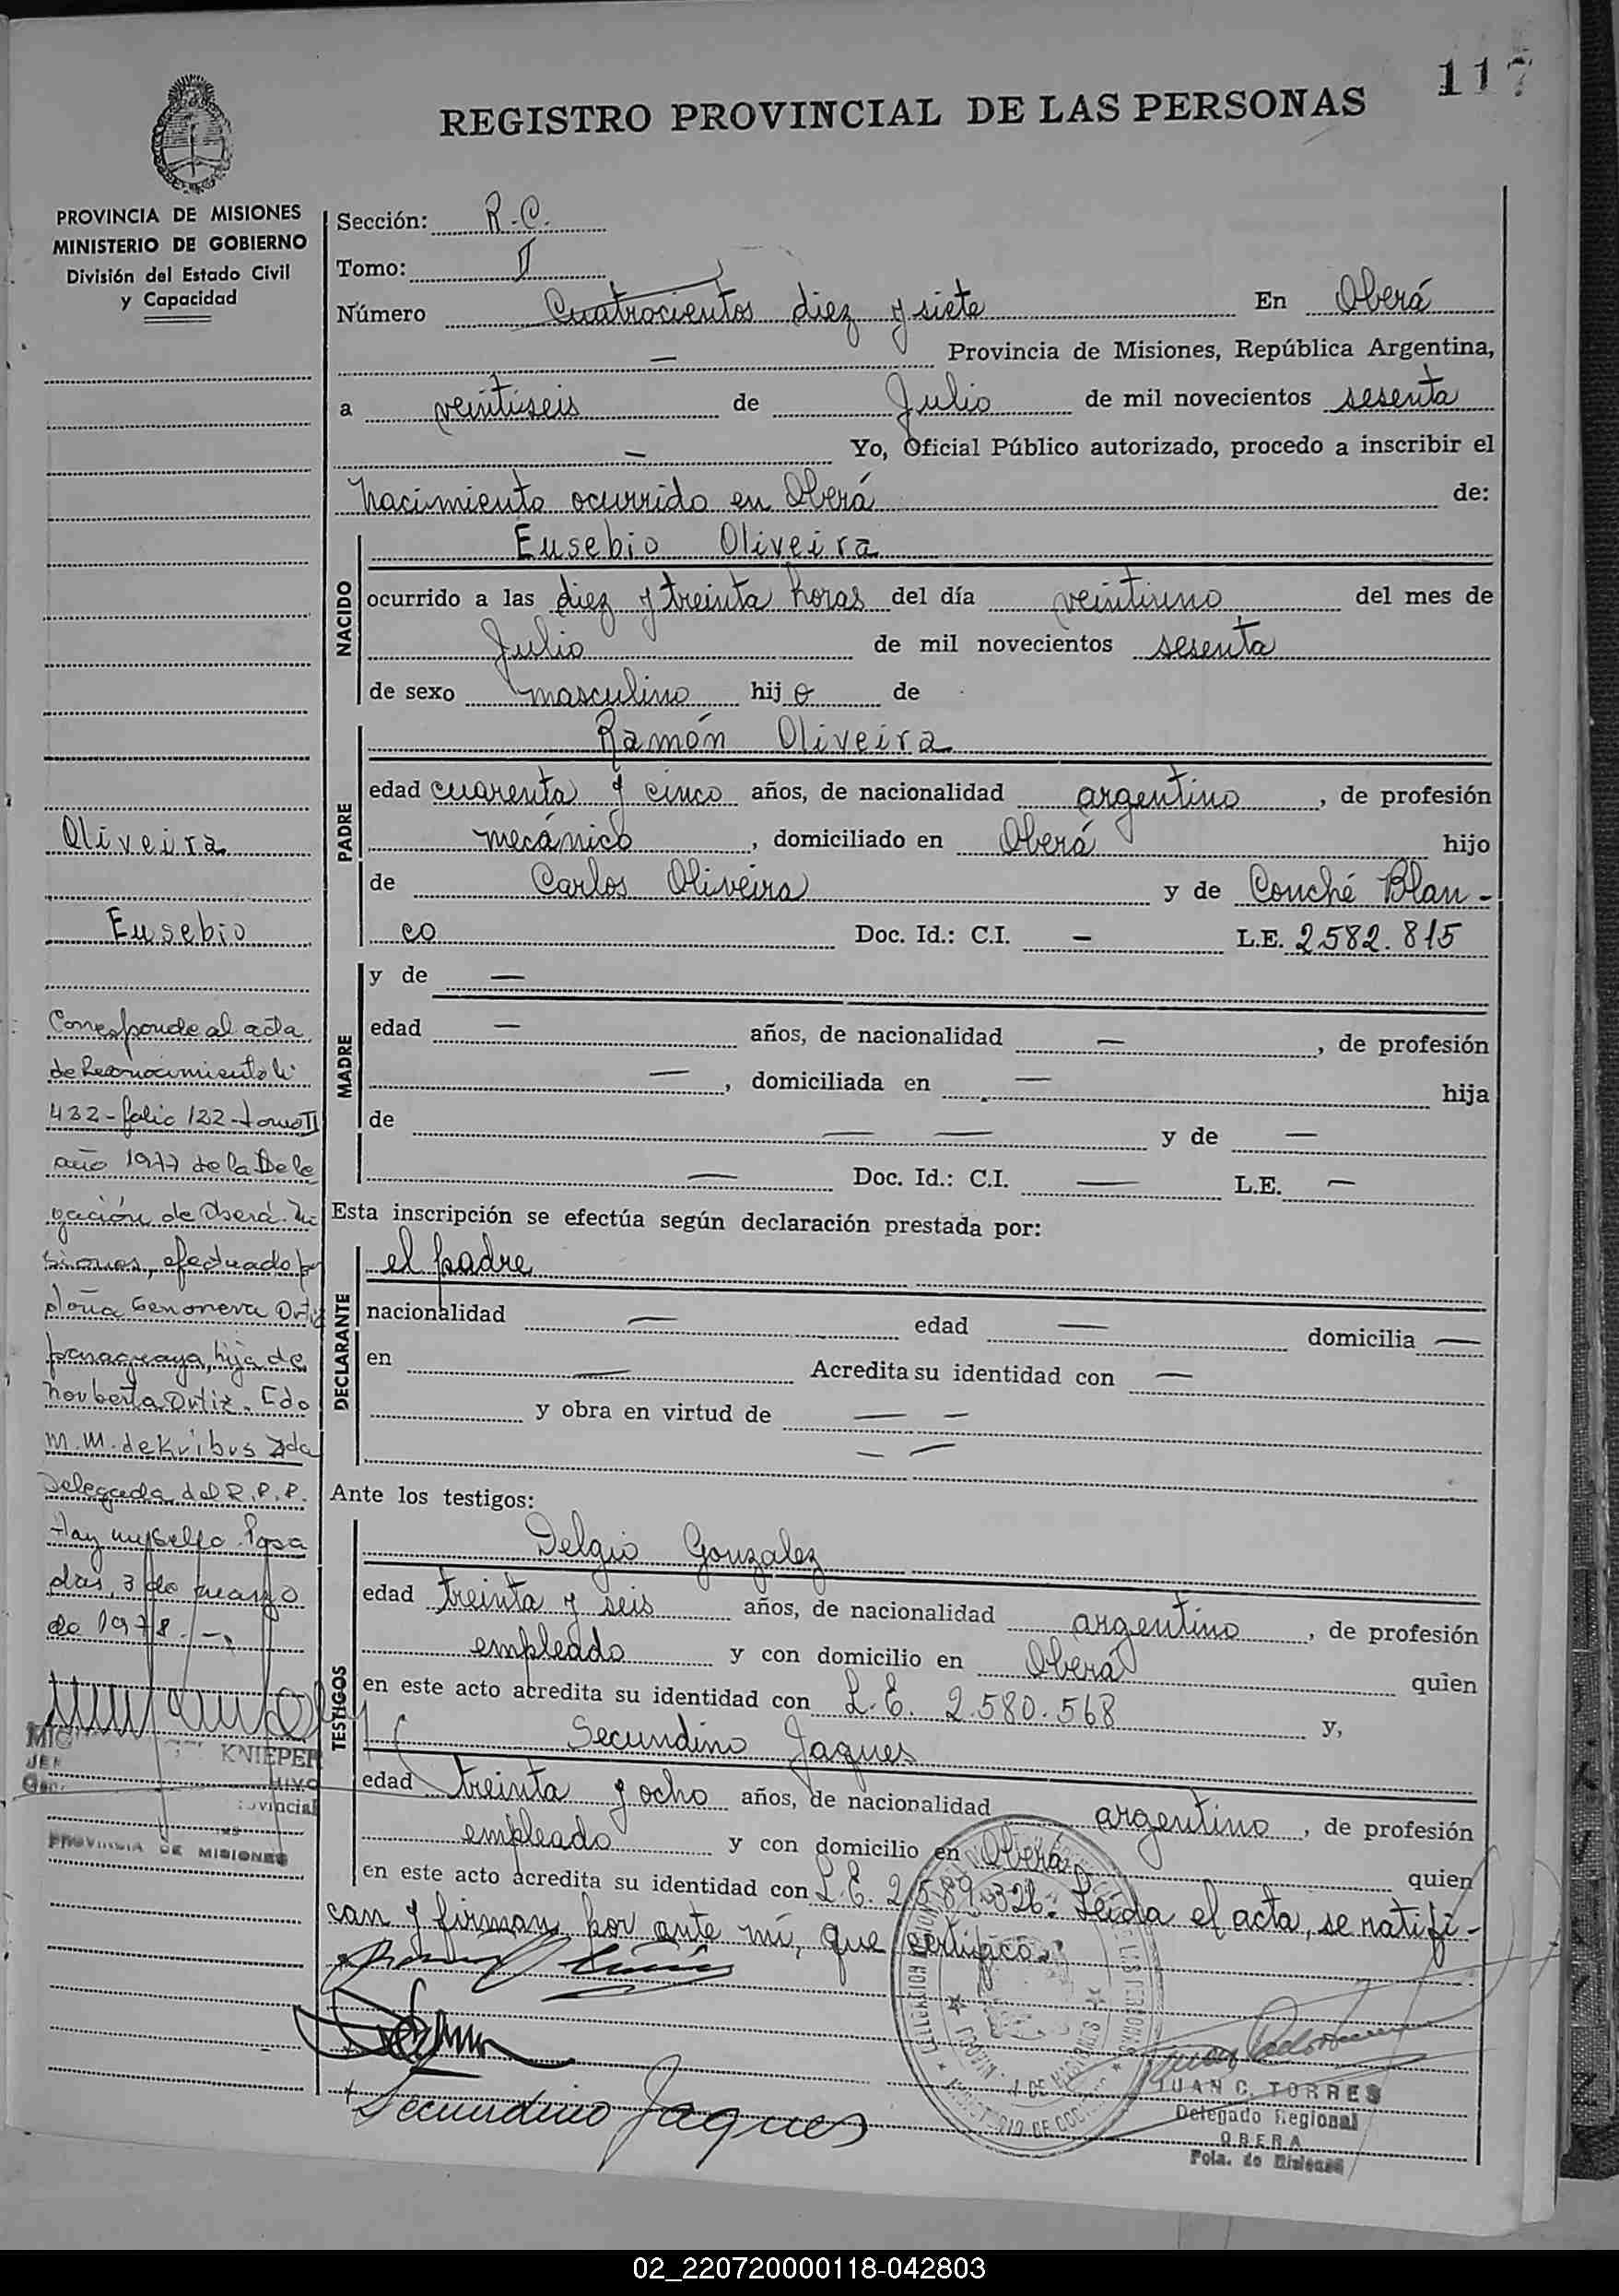 117
REGISTRO PROVINCIAL DE LAS PERSONAS
PROVINCIA DE MISIONES
MINISTERIO DE GOBIERNO
División del Estado Civil
y Capacidad
Sección: R.C.
Tomo: II
Número Cuatrocientos diez y siete En Oberá
— Provincia de Misiones, República Argentina,
a veintiseis de Julio de mil novecientos sesenta
— Yo, Oficial Público autorizado, procedo a inscribir el
nacimiento ocurrido en Oberá de:
NACIDO
Eusebio Oliveira
ocurrido a las diez y treinta horas del día veintiuno del mes de
Julio de mil novecientos sesenta
de sexo masculino hijo de
PADRE
Ramón Oliveira
edad cuarenta y cinco años, de nacionalidad argentino, de profesión
mecánico, domiciliado en Oberá hijo
de Carlos Oliveira y de Conché Blan-
co Doc. Id.: C.I. — L.E. 2582.815
MADRE
y de —
edad — años, de nacionalidad —, de profesión
—, domiciliada en — hija
de — — y de —
— Doc. Id.: C.I. — L.E. —
Esta inscripción se efectúa según declaración prestada por:
DECLARANTE
el padre
nacionalidad — edad — domicilia —
en — Acredita su identidad con —
y obra en virtud de — —
— —
Ante los testigos:
TESTIGOS
Delgio Gonzalez
edad treinta y seis años, de nacionalidad argentino, de profesión
empleado y con domicilio en Oberá quien
en este acto acredita su identidad con L.E. 2.580.568 y,
Secundino Jaques
edad treinta y ocho años, de nacionalidad argentino, de profesión
empleado y con domicilio en Oberá quien
en este acto acredita su identidad con L.E. 2.589.326. Leída el acta, se ratifi-
can y firman por ante mí, que certifico.
Secundino Jaques
JUAN C. TORRES
Delegado Regional
OBERA
Pcia. de Misiones
Oliveira
Eusebio
Corresponde al acta
de Reconocimiento
432-folio 122-tomo II
año 1977 de la Dele
gación de Oberá. Mi
siones, efectuado por
doña Genoveva Ortiz
paraguaya, hija de
Norberta Ortiz. Fdo
M.M. de Kribus
Delegada del R.P.P.
Hay un sello. Posa
das, 3 de marzo
de 1978.—
KNIEPER
PROVINCIA DE MISIONES
02_220720000118-042803